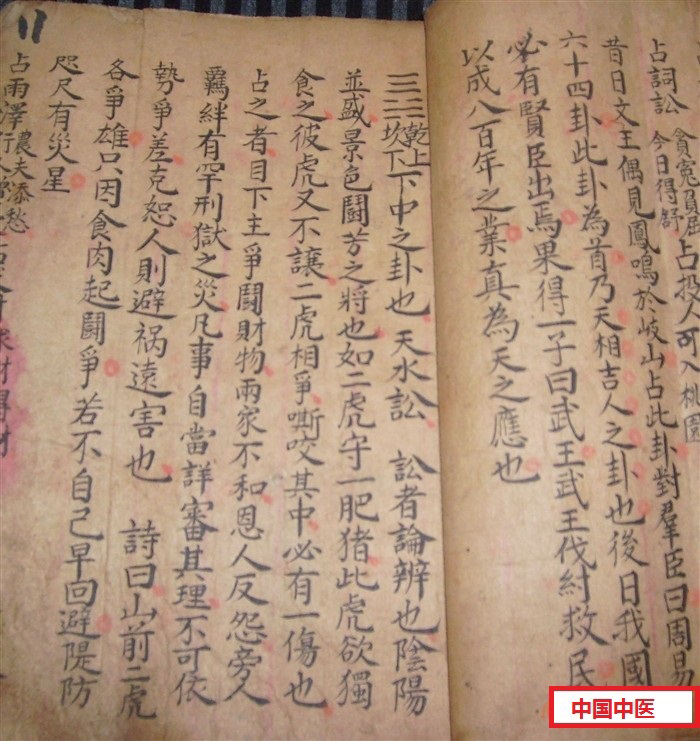 占詞訟
今日得舒
占投人可入桃園
昔日文王偶見鳳鳴於岐山占此卦對羣臣曰周易
六十四卦此卦為首乃天相吉人之卦也後日我國
必有賢臣出焉果得一子曰武王武王伐紂救民
以成八百年之業真為天之應也
乾上坎下下中之卦也 天水訟 訟者論辨也陰陽
並盛景色鬪芳之將也如二虎守一肥猪此虎欲獨
食之彼虎又不讓二虎相爭嘶咬其中必有一傷也
占之者目下主爭鬪財物兩家不和恩人反怨旁人
羈絆有罕刑獄之災凡事自當詳審其理不可依
勢爭差克恕人則避祸遠害也 詩曰山前二虎
各爭雄只因食肉起鬪爭若不自己早回避隄防
咫尺有灾星
占雨澤
農夫添愁
11
中国中医